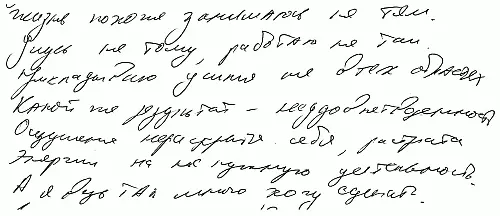 Жизнь похоже занимаюсь не тем.
Учусь не тому, работаю не там.
Прикладываю усилия не в тех областях
Какой же результат - неудовлетворенность
Ощущение нераскрытия себя, растрата
Энергии на ненужную деятельность.
А я ведь так много хочу сделать.